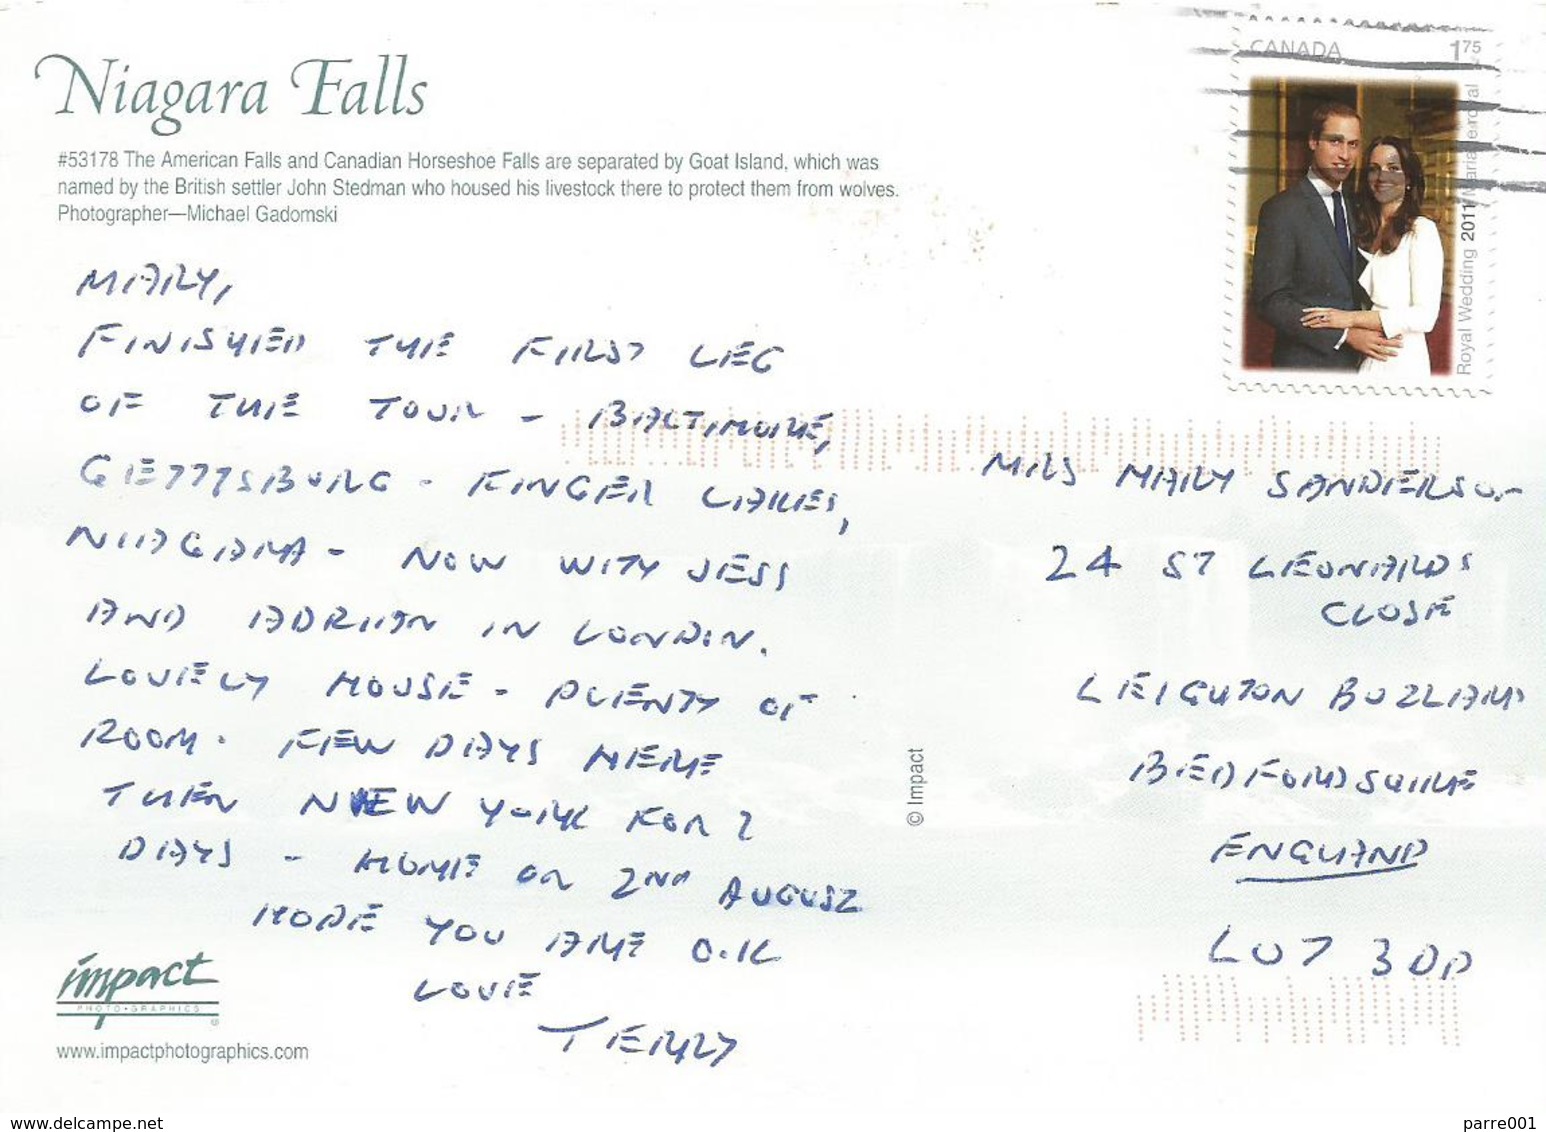 Niagara Falls
#53178 The American Falls and Canadian Horseshoe Falls are separated by Goat Island, which was
named by the British settler John Stedman who housed his livestock there to protect them from wolves.
Photographer—Michael Gadomski
CANADA 1 75
Royal Wedding 2011 Mariage royal
MARY,
FINISHED THE FIRST LEG
OF THE TOUR - BALTIMORE,
GETTYSBURG - FINGER LAKES,
NIAGARA - NOW WITH JESS
AND ADRIAN IN LONDON.
LOVELY HOUSE - PLENTY OF
ROOM. FEW DAYS HERE
THEN NEW YORK FOR 2
DAYS - HOME ON 2ND AUGUST
HOPE YOU ARE O.K
LOVE
TERRY
MRS MARY SANDERSON
24 ST LEONARDS
CLOSE
LEIGHTON BUZZARD
BEDFORDSHIRE
ENGLAND
LU7 3DD
© Impact
impact
PHOTO•GRAPHICS
www.impactphotographics.com
www.delcampe.net
parre001